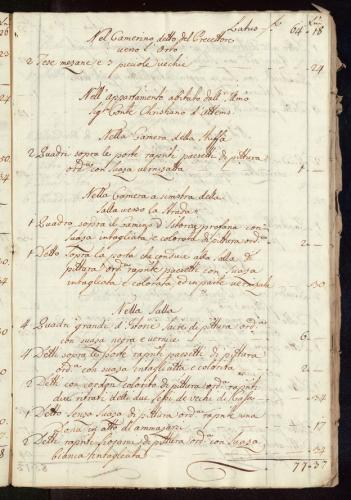 Latus f. 64 - 18
Nel Camerino detto del Precettore
verso l'Orto
2 Tese mezane e 3 picciole vechie - 24
Nell'apartamento abitato dall'Illmo
Sigr Conte Christiano d'Attems
Nella Camera della Stuffa
2 Quadri sopra le porte rapnti paesetti di pittura
ordria con suaza 1 -
Nella Camera a sinistra della
Salla verso la Strada
1 Quadro sopra il camino d'Istoria profana con
suaza intagliata, e colorata di pittura ordria 2 -
1 Detto sopra la porta che conduce alla salla di
pittura ordria rapnte paesetti con suaza
intagliata e colorata, ed in parte - 30
Nella Salla
4 Quadri grandi d'Istorie Sacre di pittura ordria
con suaza negra e vernice 6 -
4 Detti sopra le porte rapnti paesetti di pittura
ordria con suaza intagliatta e colorita 2 -
2 Detti con suaza colorita di pittura ordria rapnti
due ritrati delle due Teste de Vechi di - 34
1 Detto senza suaza di pittura ordria rapnte una
Dona in atto di amazarsi - 17
2 Detti rapnti Fiorami di pittura ordria con suaza
bianca intagliata - 34
77 - 37